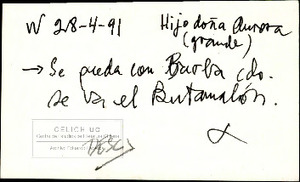 W 28-4-91 Hijo doña Aurora
(grande)
→ Se pueda con Barba cdo.
se va el Butamalón.
CELICH UC